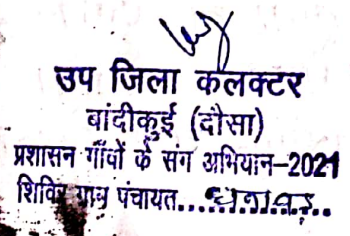 उप जिला कलक्टर
बांदीकुई (दौसा)
प्रशासन गाँवों के संग अभियान–2021
शिविर ग्राम पंचायत....धनावड़..